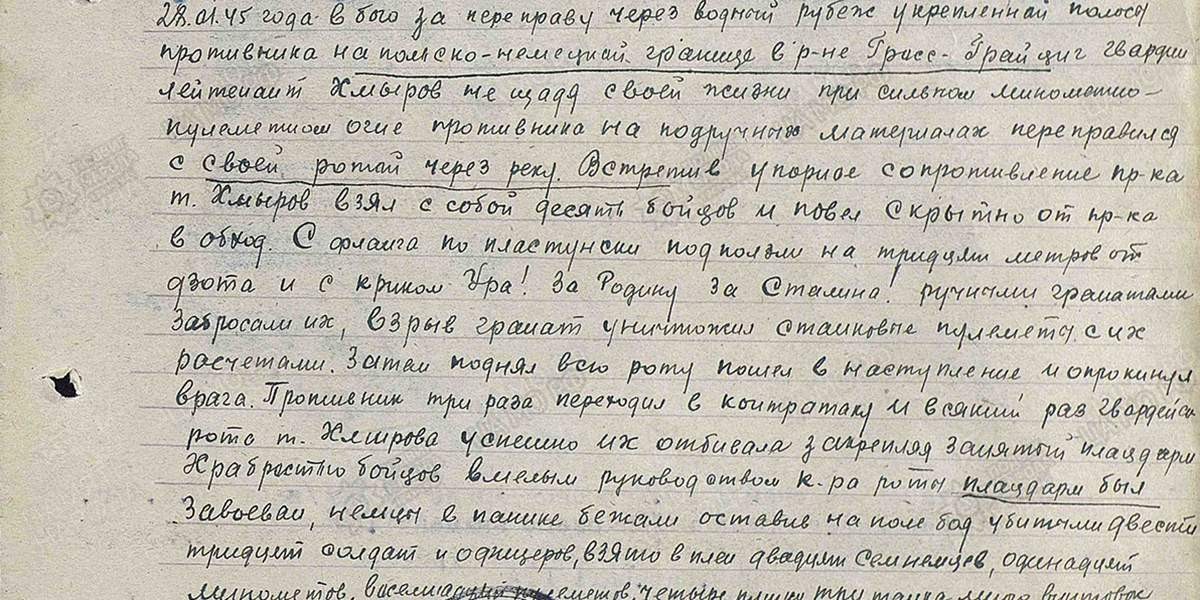 28.01.45 года в бою за переправу через водный рубеж укрепленной полосы
противника на польско-немецкой границе в р-не Гросс-Грайциг гвардии
лейтенант Хмыров не щадя своей жизни при сильном минометно-
пулеметном огне противника на подручных материалах переправился
с своей ротой через реку. Встретив упорное сопротивление пр-ка
т. Хмыров взял с собой десять бойцов и повел скрытно от пр-ка
в обход. С фланга по пластунски подползли на тридцати метров от
дзота и с криком Ура! За Родину за Сталина! ручными гранатами
забросали их, взрыв гранат уничтожил станковые пулеметы с их
расчетами. Затем поднял всю роту пошел в наступление и опрокинул
врага. Противник три раза переходил в контратаку и всякий раз гвардейск
рота т. Хмырова успешно их отбивала закрепляя занятый плацдарм
Храбростью бойцов вмелым руководством к-ра роты плацдарм был
завоеван, немцы в панике бежали оставив на поле боя убитыми двести
тридцать солдат и офицеров, взято в плен двадцать семь немцев, одинадцать
минометов, пулеметов, четыре пушки три танка много винтовок